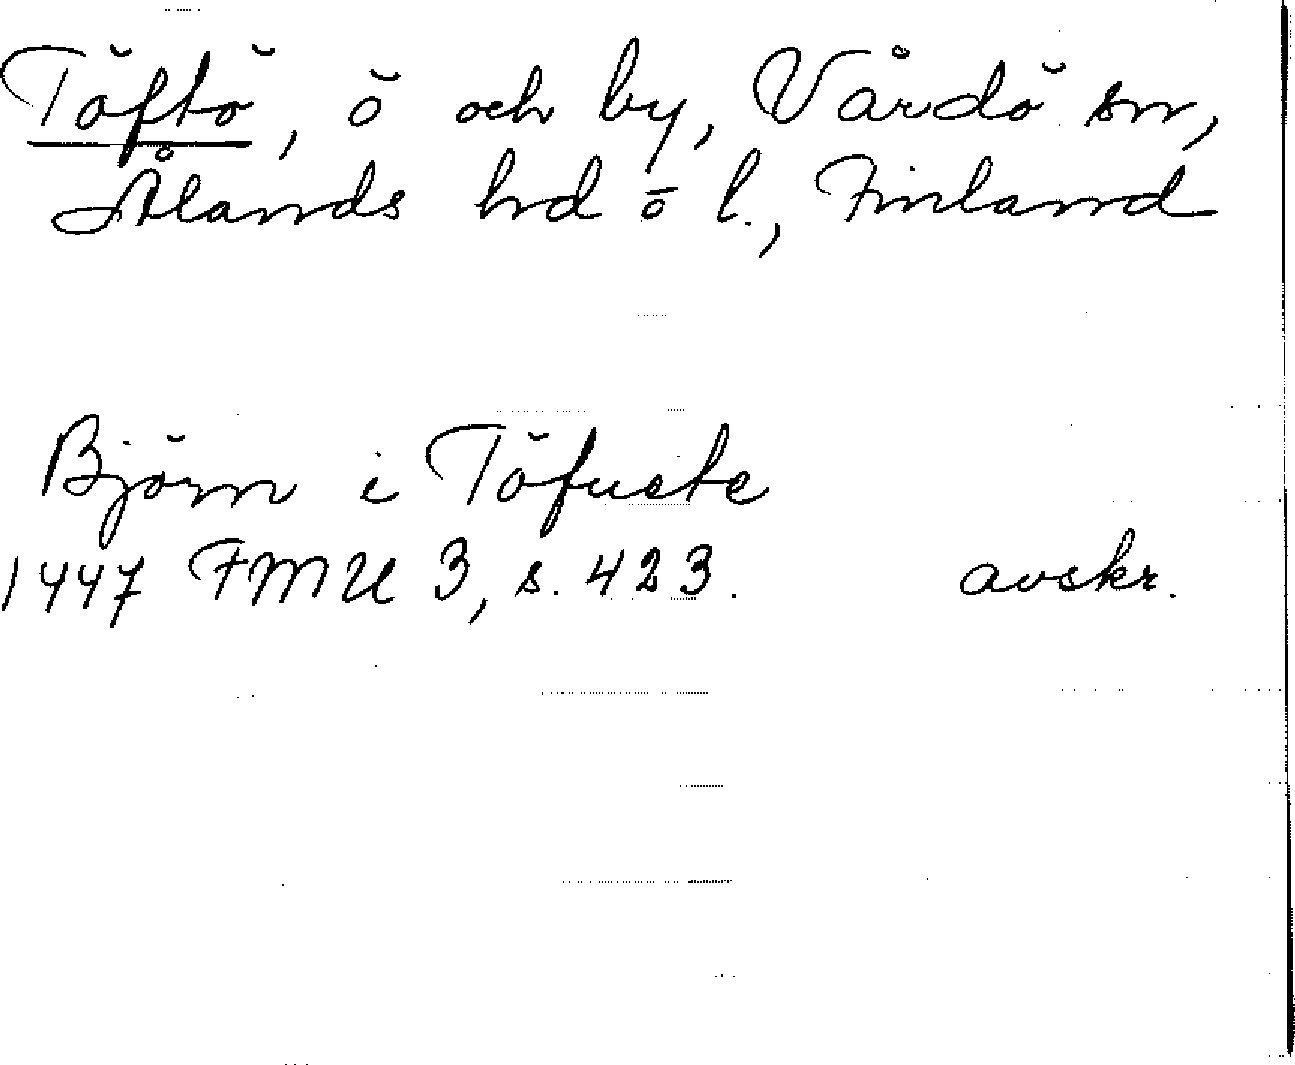 Töftö, ö och by, Vårdö sn,
Ålands hd o l., Finland
Björn i Töfuete
1447 FMU 3, s. 423. avskr.